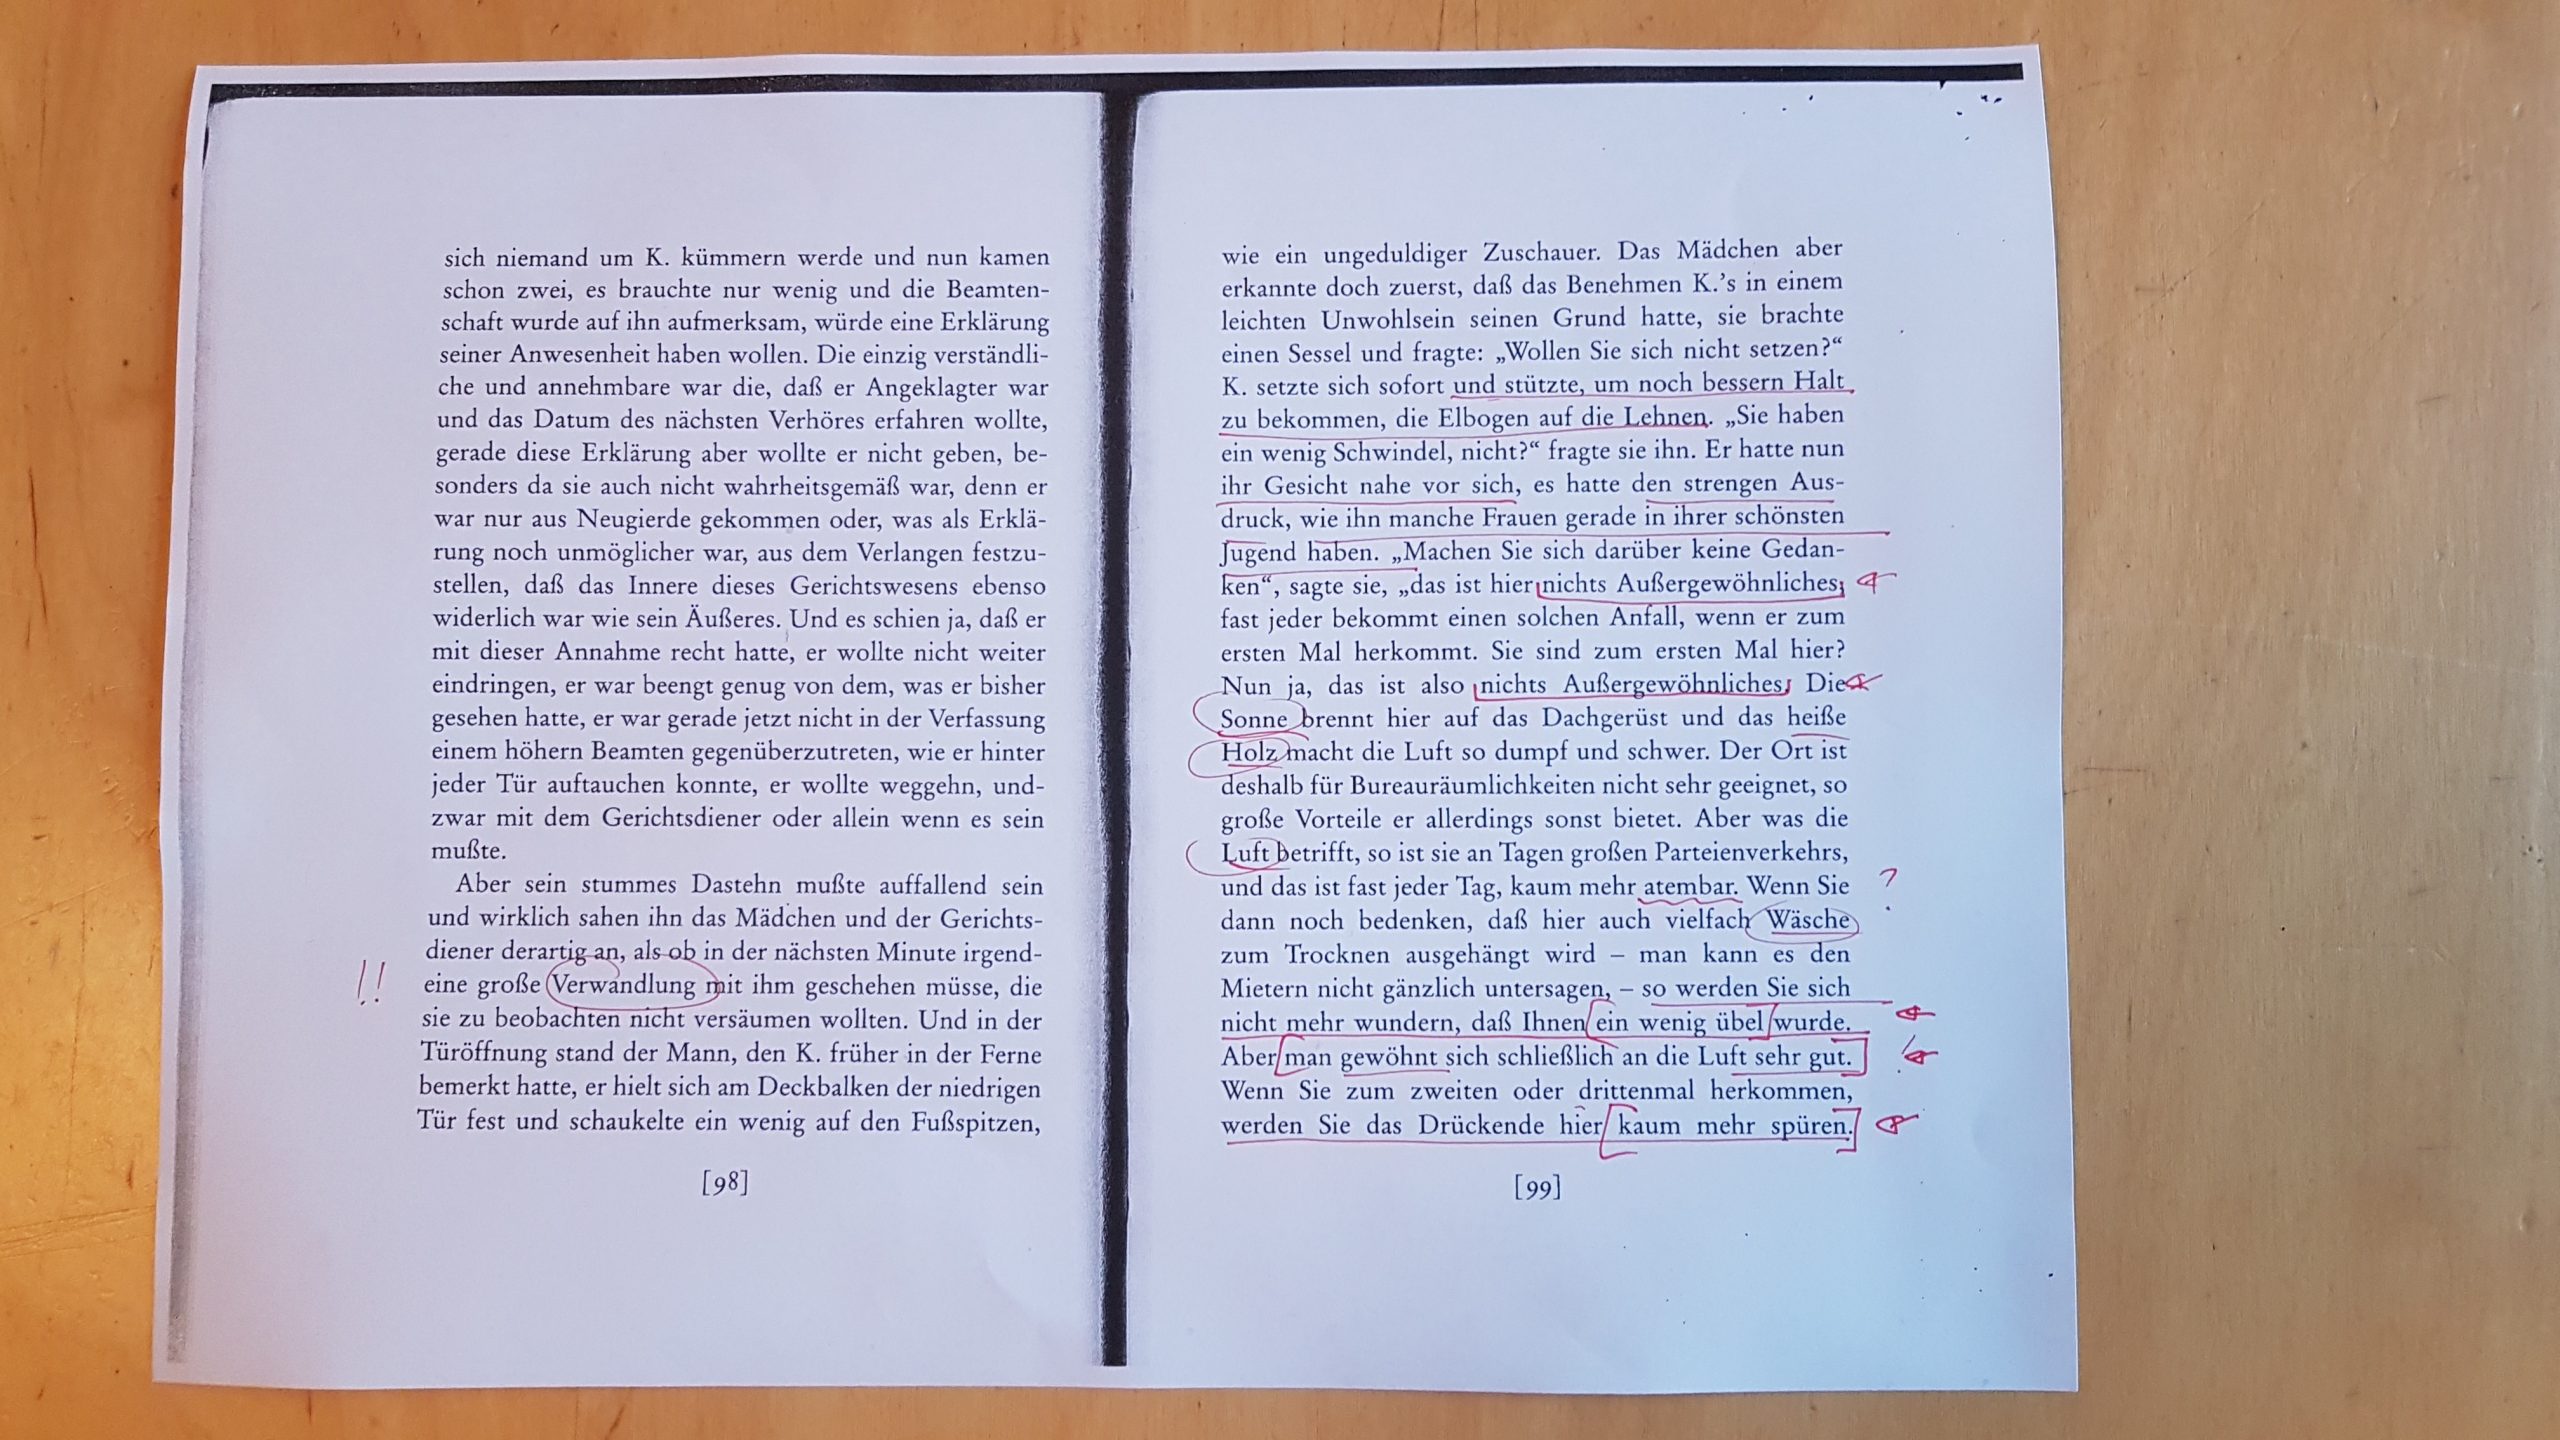 sich niemand um K. kümmern werde und nun kamen
schon zwei, es brauchte nur wenig und die Beamten-
schaft wurde auf ihn aufmerksam, würde eine Erklärung
seiner Anwesenheit haben wollen. Die einzig verständli-
che und annehmbare war die, daß er Angeklagter war
und das Datum des nächsten Verhöres erfahren wollte,
gerade diese Erklärung aber wollte er nicht geben, be-
sonders da sie auch nicht wahrheitsgemäß war, denn er
war nur aus Neugierde gekommen oder, was als Erklä-
rung noch unmöglicher war, aus dem Verlangen festzu-
stellen, daß das Innere dieses Gerichtswesens ebenso
widerlich war wie sein Äußeres. Und es schien ja, daß er
mit dieser Annahme recht hatte, er wollte nicht weiter
eindringen, er war beengt genug von dem, was er bisher
gesehen hatte, er war gerade jetzt nicht in der Verfassung
einem höhern Beamten gegenüberzutreten, wie er hinter
jeder Tür auftauchen konnte, er wollte weggehn, und-
zwar mit dem Gerichtsdiener oder allein wenn es sein
mußte.
Aber sein stummes Dastehn mußte auffallend sein
und wirklich sahen ihn das Mädchen und der Gerichts-
diener derartig an, als ob in der nächsten Minute irgend-
!! eine große Verwandlung mit ihm geschehen müsse, die
sie zu beobachten nicht versäumen wollten. Und in der
Türöffnung stand der Mann, den K. früher in der Ferne
bemerkt hatte, er hielt sich am Deckbalken der niedrigen
Tür fest und schaukelte ein wenig auf den Fußspitzen,
[98]
wie ein ungeduldiger Zuschauer. Das Mädchen aber
erkannte doch zuerst, daß das Benehmen K.'s in einem
leichten Unwohlsein seinen Grund hatte, sie brachte
einen Sessel und fragte: „Wollen Sie sich nicht setzen?“
K. setzte sich sofort und stützte, um noch bessern Halt
zu bekommen, die Elbogen auf die Lehnen. „Sie haben
ein wenig Schwindel, nicht?“ fragte sie ihn. Er hatte nun
ihr Gesicht nahe vor sich, es hatte den strengen Aus-
druck, wie ihn manche Frauen gerade in ihrer schönsten
Jugend haben. „Machen Sie sich darüber keine Gedan-
ken“, sagte sie, „das ist hier nichts Außergewöhnliches,
fast jeder bekommt einen solchen Anfall, wenn er zum
ersten Mal herkommt. Sie sind zum ersten Mal hier?
Nun ja, das ist also nichts Außergewöhnliches. Die
Sonne brennt hier auf das Dachgerüst und das heiße
Holz macht die Luft so dumpf und schwer. Der Ort ist
deshalb für Bureauräumlichkeiten nicht sehr geeignet, so
große Vorteile er allerdings sonst bietet. Aber was die
Luft betrifft, so ist sie an Tagen großen Parteienverkehrs,
und das ist fast jeder Tag, kaum mehr atembar. Wenn Sie ?
dann noch bedenken, daß hier auch vielfach Wäsche
zum Trocknen ausgehängt wird – man kann es den
Mietern nicht gänzlich untersagen, – so werden Sie sich
nicht mehr wundern, daß Ihnen ein wenig übel wurde.
Aber man gewöhnt sich schließlich an die Luft sehr gut.
Wenn Sie zum zweiten oder drittenmal herkommen,
werden Sie das Drückende hier kaum mehr spüren.
[99]